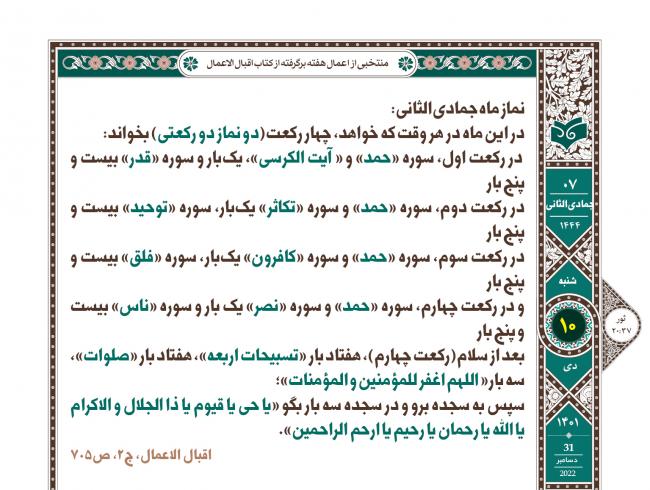 منتخبی از اعمال هفته برگرفته از کتاب اقبال الاعمال
نماز ماه جمادی الثانی:
در این ماه در هر وقت که خواهد، چهار رکعت(دو نماز دو رکعتی) بخواند:
در رکعت اول، سوره «حمد» و « آیت الکرسی»، یک‌بار و سوره «قدر» بیست و
پنج بار
در رکعت دوم، سوره «حمد» و سوره «تکاثر» یک‌بار، سوره «توحید» بیست و
پنج بار
در رکعت سوم، سوره «حمد» و سوره «کافرون» یک‌بار، سوره «فلق» بیست و
پنج بار
و در رکعت چهارم، سوره «حمد» و سوره «نصر» یک بار و سوره «ناس» بیست
و پنج بار
بعد از سلام(رکعت چهارم)، هفتاد بار «تسبیحات اربعه»، هفتاد بار «صلوات»،
سه بار« اللهم اغفر للمؤمنین و المؤمنات»؛
سپس به سجده برو و در سجده سه بار بگو «یا حی یا قیوم یا ذا الجلال و الاکرام
یا الله یا رحمان یا رحیم یا ارحم الراحمین».
اقبال الاعمال، ج۲، ص۷۰۵
۰۷
جمادی‌الثانی
۱۴۴۴
شنبه
۱۰
ثور
۲۰:۳۷
دی
۱۴۰۱
31
دسامبر
2022